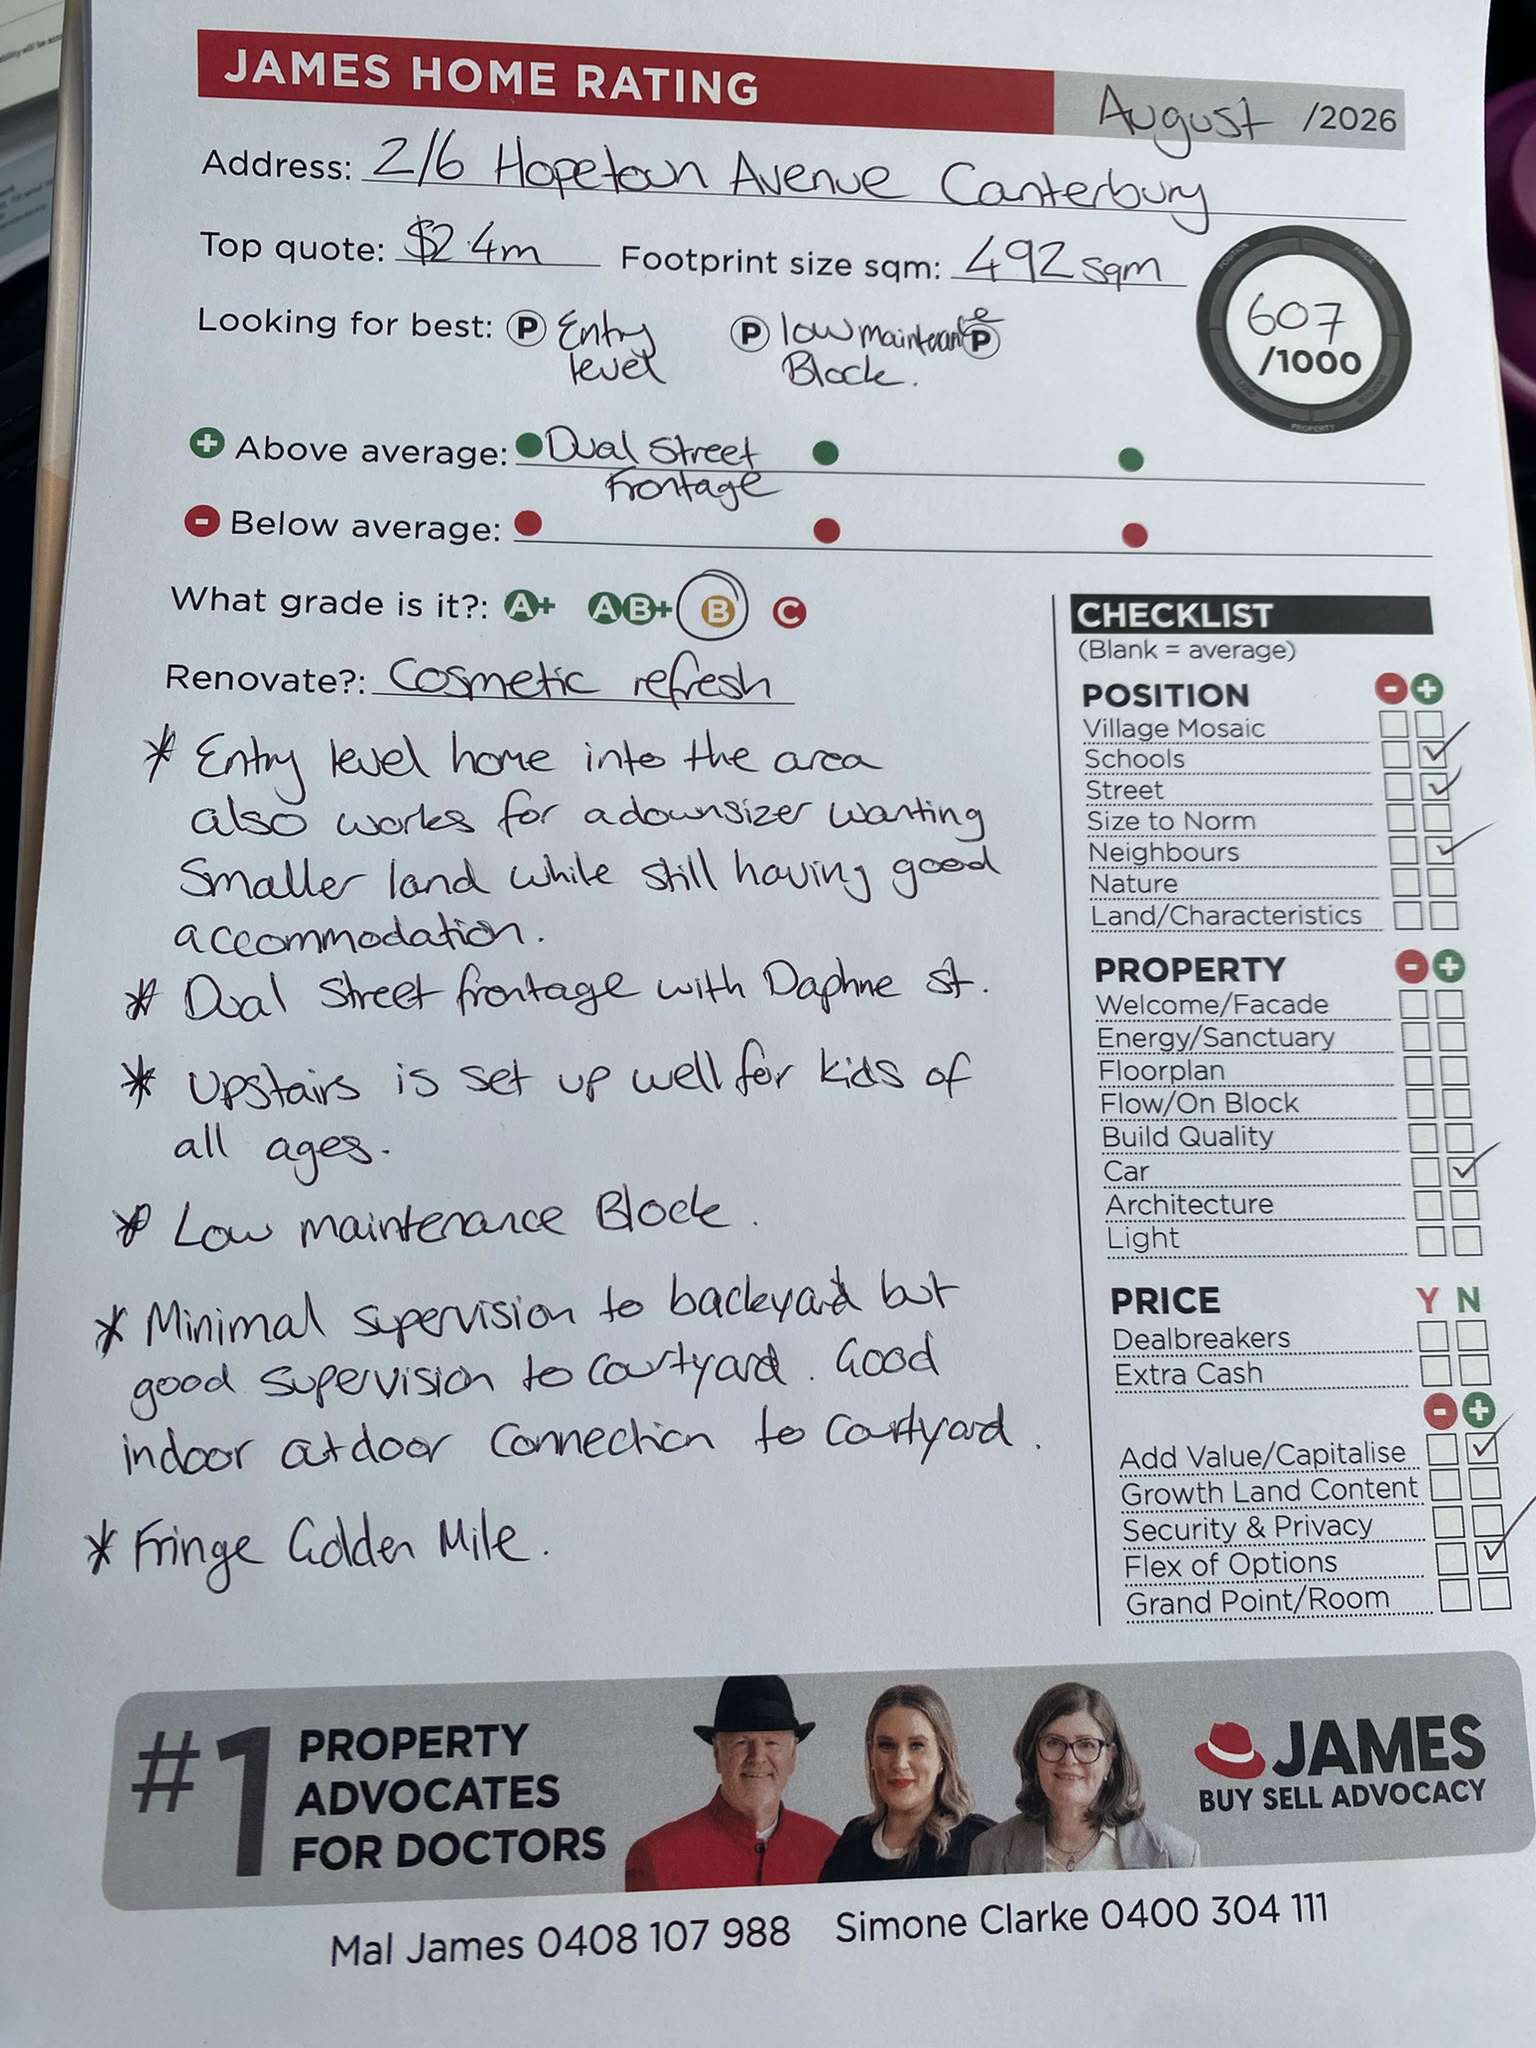 JAMES HOME RATING
August /2026
Address: 2/6 Hopetoun Avenue Canterbury
Top quote: $2.4m Footprint size sqm: 492sqm
607
/1000
Looking for best: P Entry level P low maintenance Block. P
+ Above average: Dual Street Frontage
- Below average:
What grade is it?: A+ AB+ B C
Renovate?: Cosmetic refresh
* Entry level home into the area
also works for a downsizer wanting
smaller land while still having good
accommodation.
* Dual Street frontage with Daphne st.
* Upstairs is set up well for kids of
all ages.
* Low maintenance Block.
* Minimal supervision to backyard but
good supervision to courtyard. Good
indoor outdoor connection to courtyard.
* Fringe Golden Mile.
CHECKLIST
(Blank = average)
POSITION - +
Village Mosaic
Schools
Street
Size to Norm
Neighbours
Nature
Land/Characteristics
PROPERTY - +
Welcome/Facade
Energy/Sanctuary
Floorplan
Flow/On Block
Build Quality
Car
Architecture
Light
PRICE Y N
Dealbreakers
Extra Cash
- +
Add Value/Capitalise
Growth Land Content
Security & Privacy
Flex of Options
Grand Point/Room
#1 PROPERTY
ADVOCATES
FOR DOCTORS
JAMES
BUY SELL ADVOCACY
Mal James 0408 107 988 Simone Clarke 0400 304 111